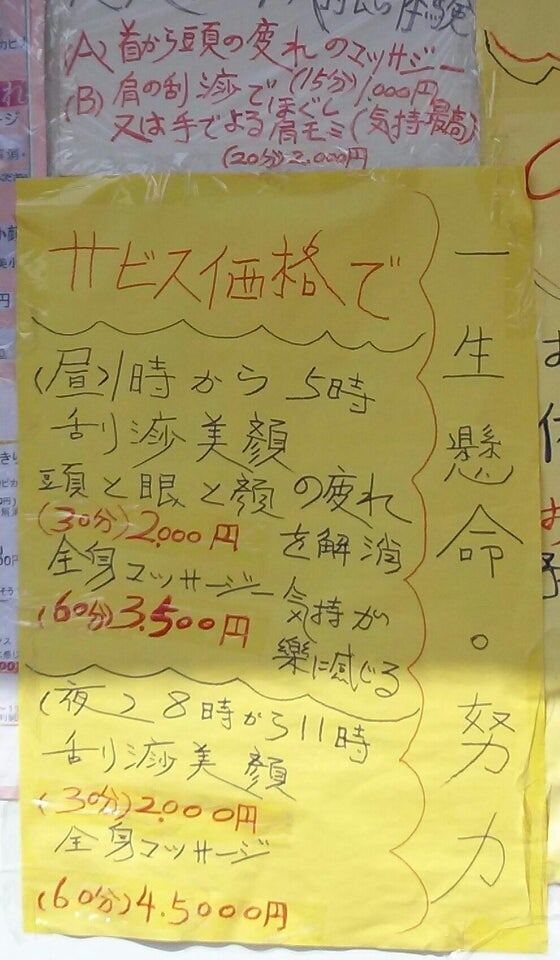 (A) 首から頭の疲れのマッサジー
(15分) 1,000円
(B) 肩の刮痧でほぐし
又は手でよる肩モミ(気持最高)
(20分) 2,000円
サビス価格で
(昼) 1時から 5時
刮痧美顔
頭と眼と顔の疲れ
を解消
(30分) 2,000円
全身マッサージー
気持が
樂に感じる
(60分) 3.500円
(夜) 8時から11時
刮痧美顔
(30分) 2.000円
全身マッサージ
(60分) 4.5000円
一生懸命。努力